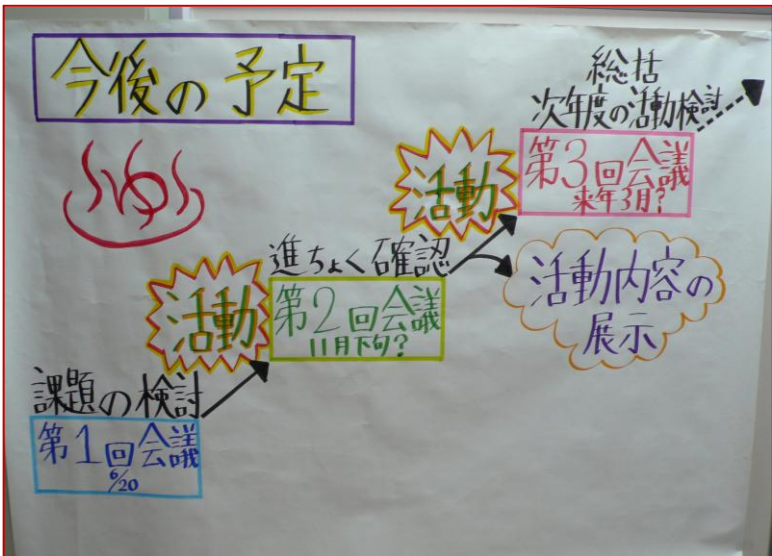 今後の予定
ゆ
課題の検討
第1回会議
6/20
活動
進ちょく確認
第2回会議
11月下旬?
活動
総括
次年度の活動検討
第3回会議
来年3月?
活動内容の
展示